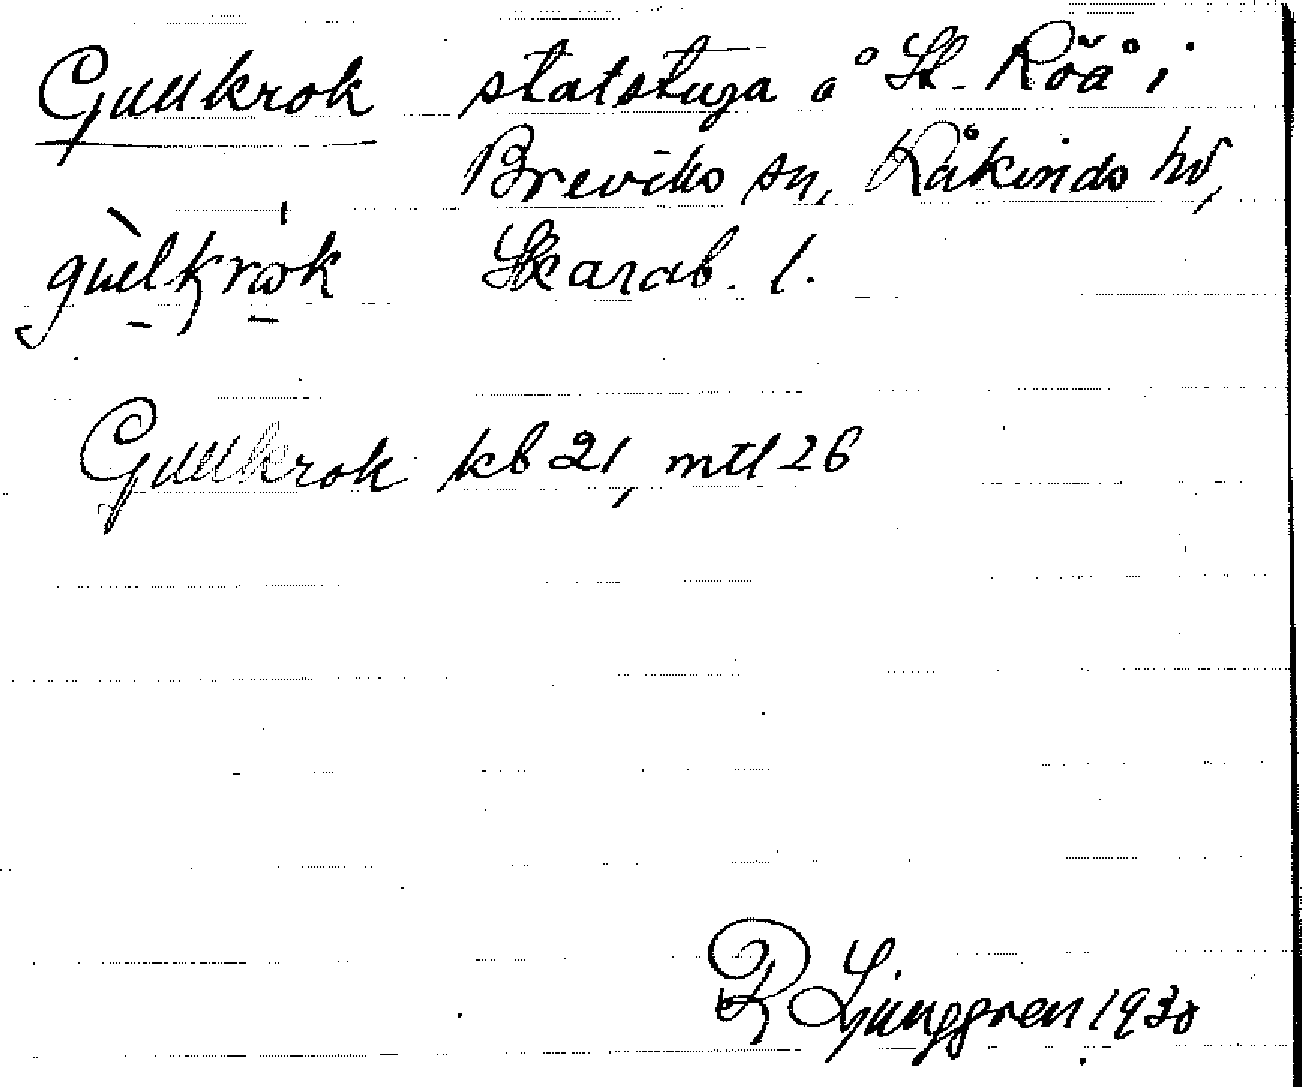 Gullkrok statstuga å St. Röå i
Breviks sn, Kåkinds hd,
gùlkrók Skarab. l.
Gullkrok kb 21, mtl 26
R Ljunggren 1930